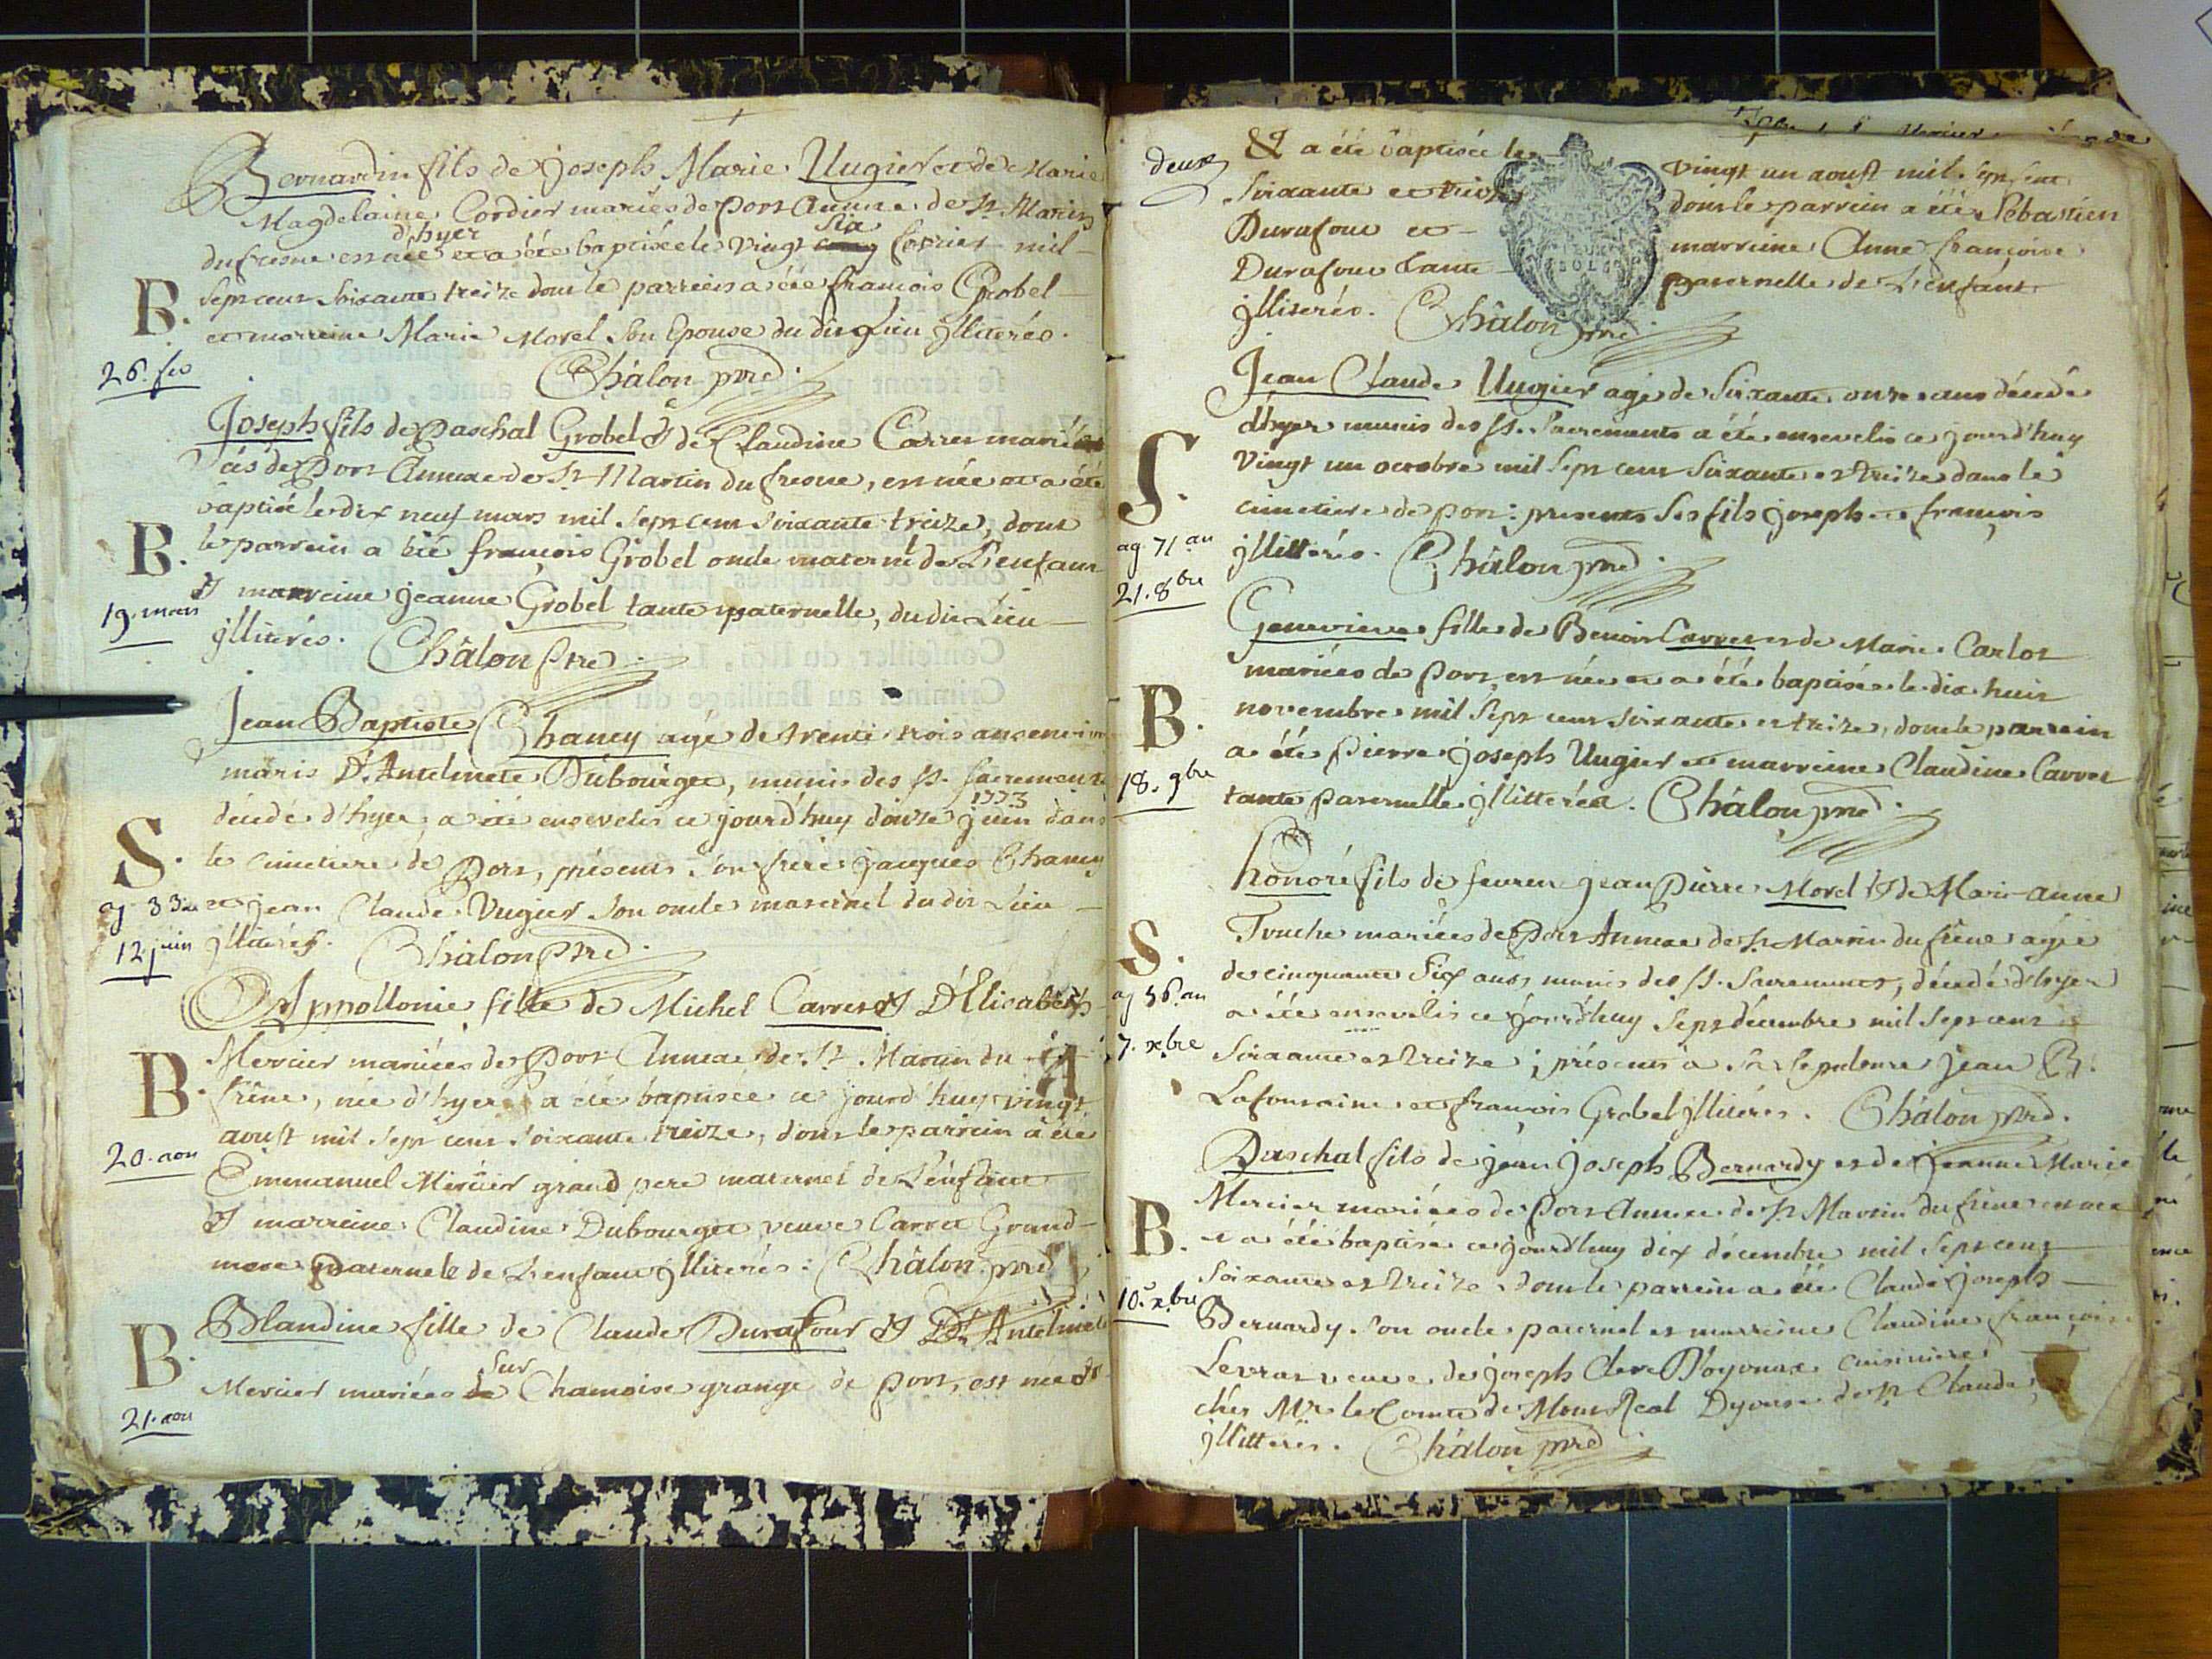 Bernardin fils de Joseph Marie Uugier et de Marie
Magdelaine Cordier mariés de Port Annexe de St Martin
dufresne est née d'hyer et a été baptisée le vingt six fevrier mil
B. sept cent soixante treize dont le parrein a été françois Grobel
et marreine Marie Morel son Epouse du dit Lieu jlliterés.
26. fev
Châlon ptre
Joseph fils de Paschal Grobel & de Claudine Carret mariés
de Port Annexe de St Martin du fresne, est née et a été
baptisé le dix neuf mars mil sept cent soixante treize, dont
B. le parrein a été françois Grobel oncle maternel de L'enfant
19. mars
& marreine Jeanne Grobel tante paternelle, du dit Lieu
jlliterés. Châlon ptre
Jean Baptiste Chaney agé de trente trois ans environ
maris D'Antelmete Dubourget, munis des SS. sacrements
1773
décédé d'hyer, a été ensevelis ce jourd'huy douze juin dans
S. le cimetiere de Port, présents son frere jacques Chaney
ag. 33 an et jean Claude Vugier son oncle maternel du dit Lieu
12 juin jlliterés. Châlon Ptre
Appollonie fille de Michel Carret & D'Elisabeth
Mercier mariées de Port Annexe de St Martin du
B. frêne, née d'hyer a été baptisée ce jourd'huy vingt
aoust mil sept cent soixante treize, dont le parrein a été
20. aou
Emmanuel Mercier grand pere maternel de L'enfant
& marreine Claudine Dubourget veuve Carret Grand
mere paternele de L'enfant jlliterés: Châlon ptre
B. Blandine fille de Claude Durafour & D'Antelmete
Mercier mariées sur Chamoise grange de Port, est née &
21. aou
deux
& a été baptisée le vingt un aoust mil sept cent
soixante et treize dont le parrein a été Sébastien
Durafour et marreine Anne françoise
Durafour tante paternelle de L'enfant
jlliterés. Châlon ptre
SOLS
Jean Claude Uugier agé de soixante onze ans décédé
d'hyer munis des SS. Sacrements a été ensevelis ce jourd'huy
S. vingt un octobre mil sept cent soixante et treize dans le
cimetiere de port: presents ses fils joseph et françois
ag. 71 an
jllitterés. Châlon ptre
21. 8bre
Genevieve fille de Benoit Carret et de Marie Carlot
mariées de Port, est née et a été baptisée le dix huit
B. novembre mil sept cent soixante et treize, dont le parrein
a été Pierre joseph Uugier et marreine Claudine Carret
18. 9bre
tante paternelle jllitterés. Châlon ptre
honoré fils de feu jean Pierre Morel & de Marianne
Touche mariées de Port Annexe de St Martin du frêne agé
S. de cinquante six ans munis des SS. Sacrements, décédé d'hyer
ag 56. an
a été ensevelis ce jourd'huy sept décembre mil sept cent
7. xbre
soixante et treize; présents a sa sepulture jean B.
Lafontaine et françois Grobel jlliterés. Châlon ptre.
Paschal fils de jean joseph Bernardy et de jeanne Marie
Mercier mariées de Port Annexe de St Martin du frêne est née
B. et a été baptisé ce jourd'huy dix décembre mil sept cent
soixante et treize dont le parrein a été Claude joseph
10. xbre
Bernardy son oncle paternel et marreine Claudine françoise
Levrat veuve de joseph Clere D'oyonnax cuisiniere
chés Mr. le Comte de Mont Real Dyocese de St Claude
jllitterés. Châlon ptre